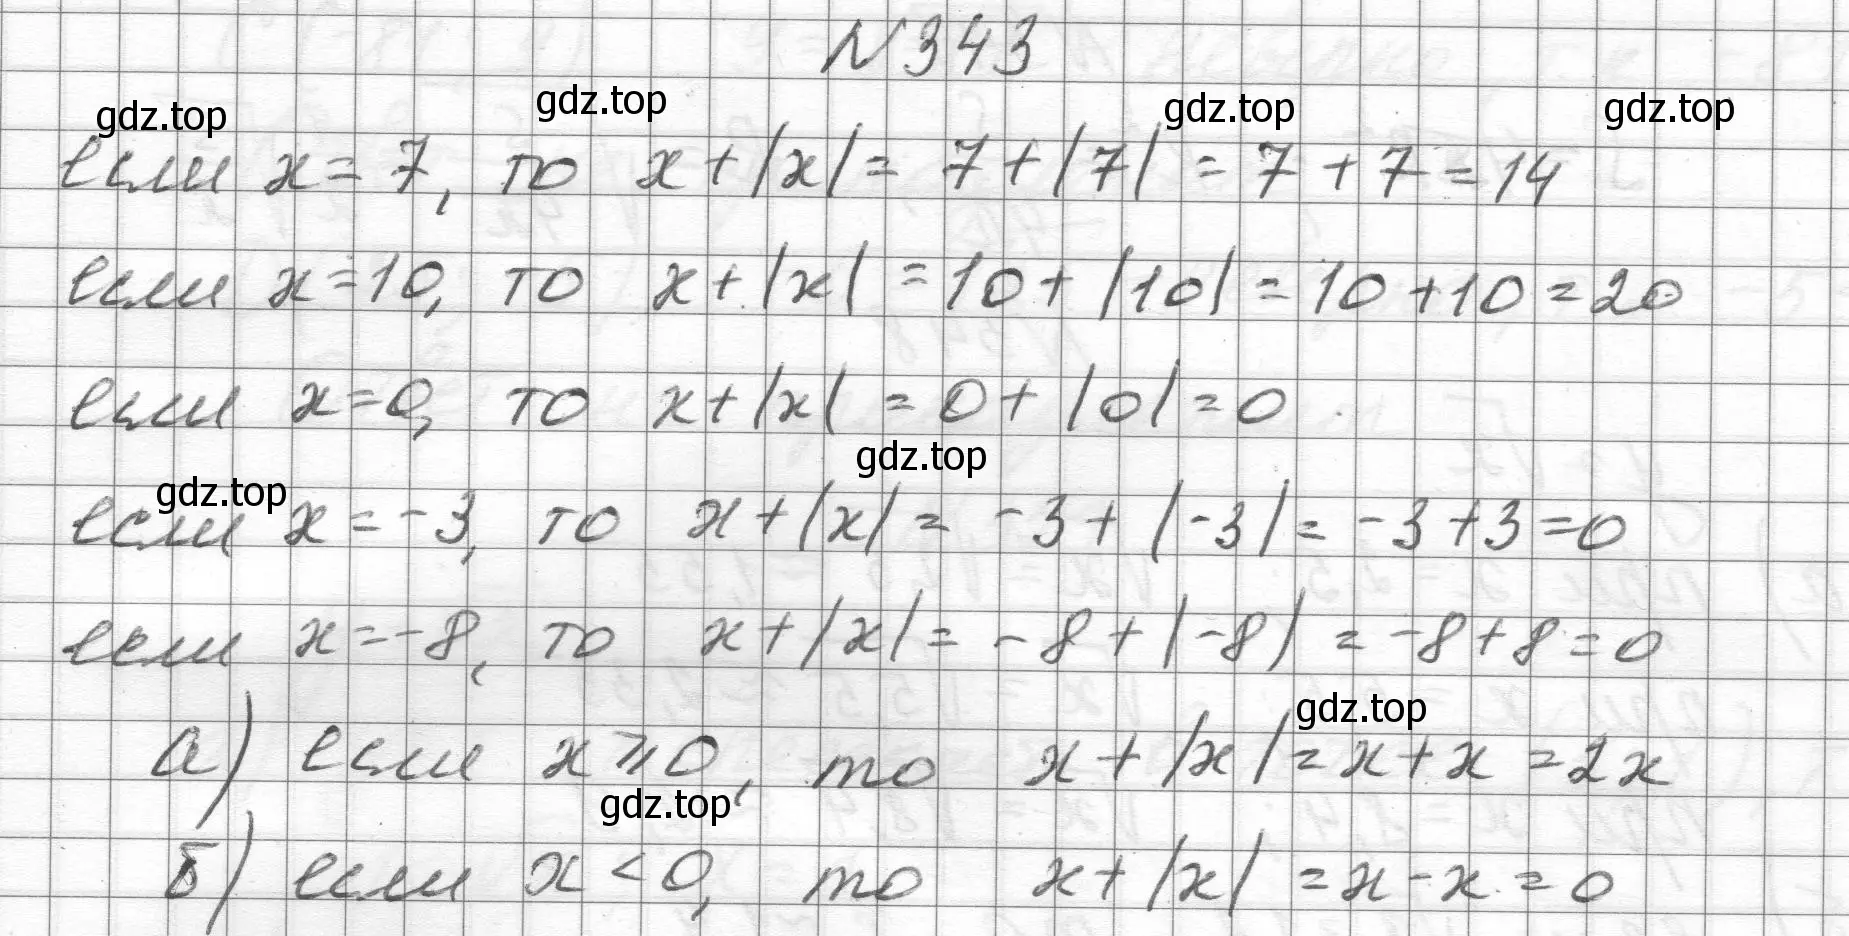 №343
gdz.top gdz.top gdz.top gdz.top
если x = 7, то x + |x| = 7 + |7| = 7 + 7 = 14
если x = 10, то x + |x| = 10 + |10| = 10 + 10 = 20
если x = 0, то x + |x| = 0 + |0| = 0
gdz.top gdz.top
если x = -3, то x + |x| = -3 + |-3| = -3 + 3 = 0
если x = -8, то x + |x| = -8 + |-8| = -8 + 8 = 0
gdz.top
а) если x ⩾ 0, то x + |x| = x + x = 2x
gdz.top
б) если x < 0, то x + |x| = x - x = 0